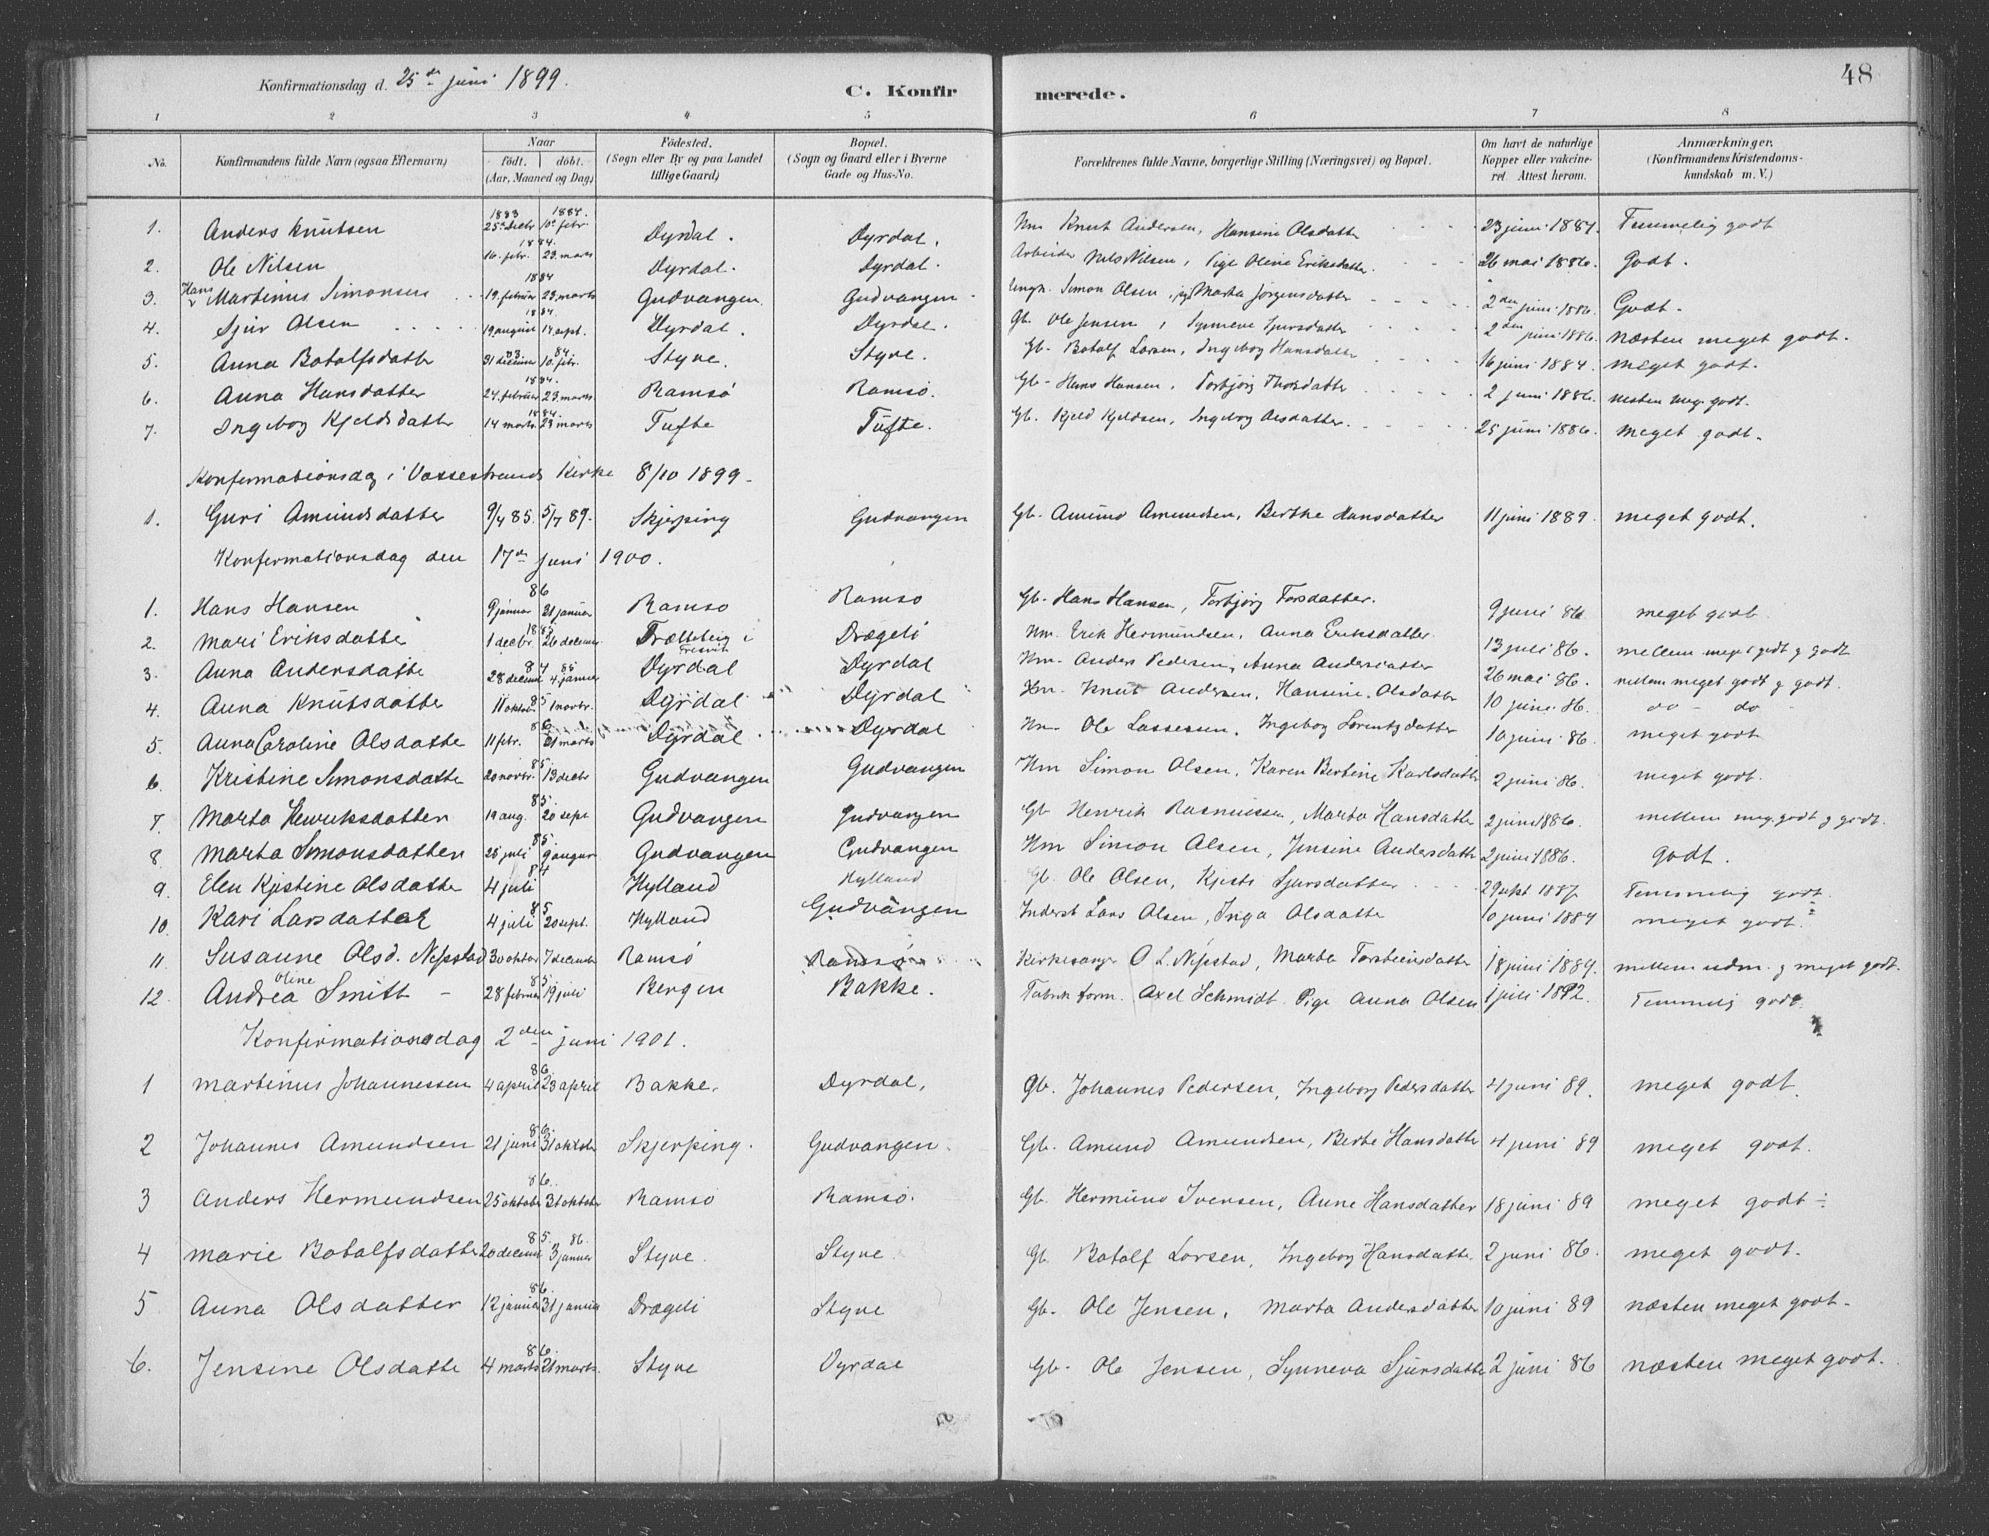 Konfirmationsdag d. 25de juni 1899.
C. Konfirmerede.
48
1 2 3 4 5 6 7 8
No. Konfirmandens fulde Navn (ogsaa Efternavn) Naar födt. döbt. (Aar, Maaned og Dag) Födested. (Sogn eller By og paa Landet tillige Gaard) Bopæl. (Sogn og Gaard eller i Byerne Gade og Hus-No. Forældrenes fulde Navne, borgerlige Stilling (Næringsvei) og Bopæl. Om havt de naturlige Kopper eller vakcineret. Attest herom. Anmærkninger. (Konfirmandens Kristendomskundskab m. V.)
1. Anders Knutsen 1883 25de decbr 1884. 10de febr. Dyrdal. Dyrdal. Hm Knut Andersen, Hansine Olsdatter 23 juni 1884. Temmelig godt
2. Ole Nilsen 1884. 16. febr. 23. mars Dyrdal. Dyrdal. Arbeider Nils Nilsen, Pige Oline Eriksdatter. 26 mai 1886. Godt.
3. Hans Martinus Simonsen 1884 19. februar 23. marts Gudvangen. Gudvangen Ungk. Simon Olsen, pg Marta Jørgensdatter 2den juni 1886. Godt.
4. Sjur Olsen 1884. 19 august 14 sept. Dyrdal. Dyrdal. Gb. Ole Jensen, Synneve Sjursdatter 2den juni 1886. næsten meget godt.
5. Anna Botolfsdatter 83 31 decemer 84. 10. febr. Styve. Styve. Gb. Botolf Larsen, Ingeborg Hansdatter 16 juni 1884. meget godt.
6. Anna Hansdatter 1884. 24. februar 23. marts Ramsö Ramsö. Gb. Hans Hansen, Torbjörg Thorsdatter 2 juni 1886. næsten meg. godt.
7. Ingeborg Kjeldsdatter 1884. 14 marts 23 marts Tufte Tufte. Gb. Kjeld Kjeldsen, Ingeborg Olsdatter. 25 juni 1886. meget godt.
Konfermationsdag i Vossestrands Kirke 8/10 1899.
1. Guri Amundsdatter 9/4 85. 5/7 89. Skjerping Gudvangen Gb. Amund Amundsen, Berthe Hansdatter 11 juni 1889. meget godt.
Konfermationsdag den 17de juni 1900.
1. Hans Hansen 86 9 januar 21 januar Ramsö Ramsö Gb. Hans Hansen, Torbjörg Torsdatter. 9 juni 86 meget godt
2. Mari Eriksdatte 1885 1 decbr. 26 decemb. Trælleberg i Fresvik Drægeli Hm. Erik Hermundsen, Anna Eriksdatter. 13 juli 86. mellem meget godt g godt
3. Anna Andersdatte 84 28 decemb 85 4. januar Dyrdal Dyrdal Hm. Anders Pedersen, Anna Andersdatter 26 mai 86. mellem meget godt g godt.
4. Anna Knutsdatter 85 11 oktob. 1 novbr. Dyrdal Dyrdal Hm. Knut Andersen, Hansine Olsdatter 10 juni 86. do do
5. Anna Caroline Olsdatte 86 11 febr. 21 marts Dyrdal Dyrdal Hm. Ole Lassesen, Ingeborg Lorentzdatter 10 juni 86. meget godt
6. Kristine Simonsdatte 85 20 novbr. 13 decbr Gudvangen Gudvangen Hm Simon Olsen, Karen Bertine Karlsdatter 2 juni 86. meget godt.
7. Marta Henriksdatter 85 19 aug. 20 sept Gudvangen Gudvangen Gb Henrik Rasmussen, Marta Hansdatter 2 juni 1886. mellem meg. godt g godt.
8. Marta Simonsdatter 85 25 juli 9 augus Gudvangen Gudvangen Hm Simon Olsen, Jensine Andersdatte 2 juni 1886. godt.
9. Elen Kjistine Olsdatte 84 4 juli Hylland Hylland Gb. Ole Olsen, Kjersti Sjursdatter 2 sept 1887. Temmelig godt.
10. Kari Larsdatter 85 4 juli 20 sept. Hylland Gudvangen Inderst Lars Olsen, Inga Olsdatte 10 juni 1884 meget godt.
11. Susanne Olsd. Nesstad 30 oktor 7 december Ramsö Ramsö Kirkesanger O L. Nesstad, Marta Torsteinsdatte 18 juni 1884. mellem udm. g meget godt.
12. Andrea Oline Smitt 85 28 februar 19 juli Bergen Bakke. Fabrik form. Axel Schmidt Pige Anna Olsen 1 juli 1892. Temmelig godt.
Konfirmationsdag 2den juni 1901.
1 Martinus Johannessen 86. 4 april 23 april Bakke. Dyrdal. Gb. Johannes Pedersen, Ingeborg Pedersdatter 4 juni 89. meget godt.
2 Johannes Amundsen 86. 21 juni 31 oktober Skjerping. Gudvangen. Gb. Amund Amundsen, Berte Hansdatter 4 juni 89 meget godt.
3 Anders Hermundsen 86. 25 oktober 31 oktober Ramsö Ramsö. Gb. Hermund Iversen, Anne Hansdatter 18 juni 89 meget godt
4 Marie Botolfsdatter 85. 20 decemb 86. 3 januar Styve. Styve. Gb. Botolf Larsen, Ingeborg Hansdatte. 2 juni 86. meget godt.
5 Anna Olsdatter 86. 12 januar 31 januar Drægeli Styve Gb. Ole Jensen, Marta Andersdatter 10 juni 89 næsten meget godt.
6. Jensine Olsdatte 86. 4 marts 21 marts. Styve Dyrdal Gb. Ole Jensen, Synneva Sjursdatte 2 juni 86 næsten meget godt.